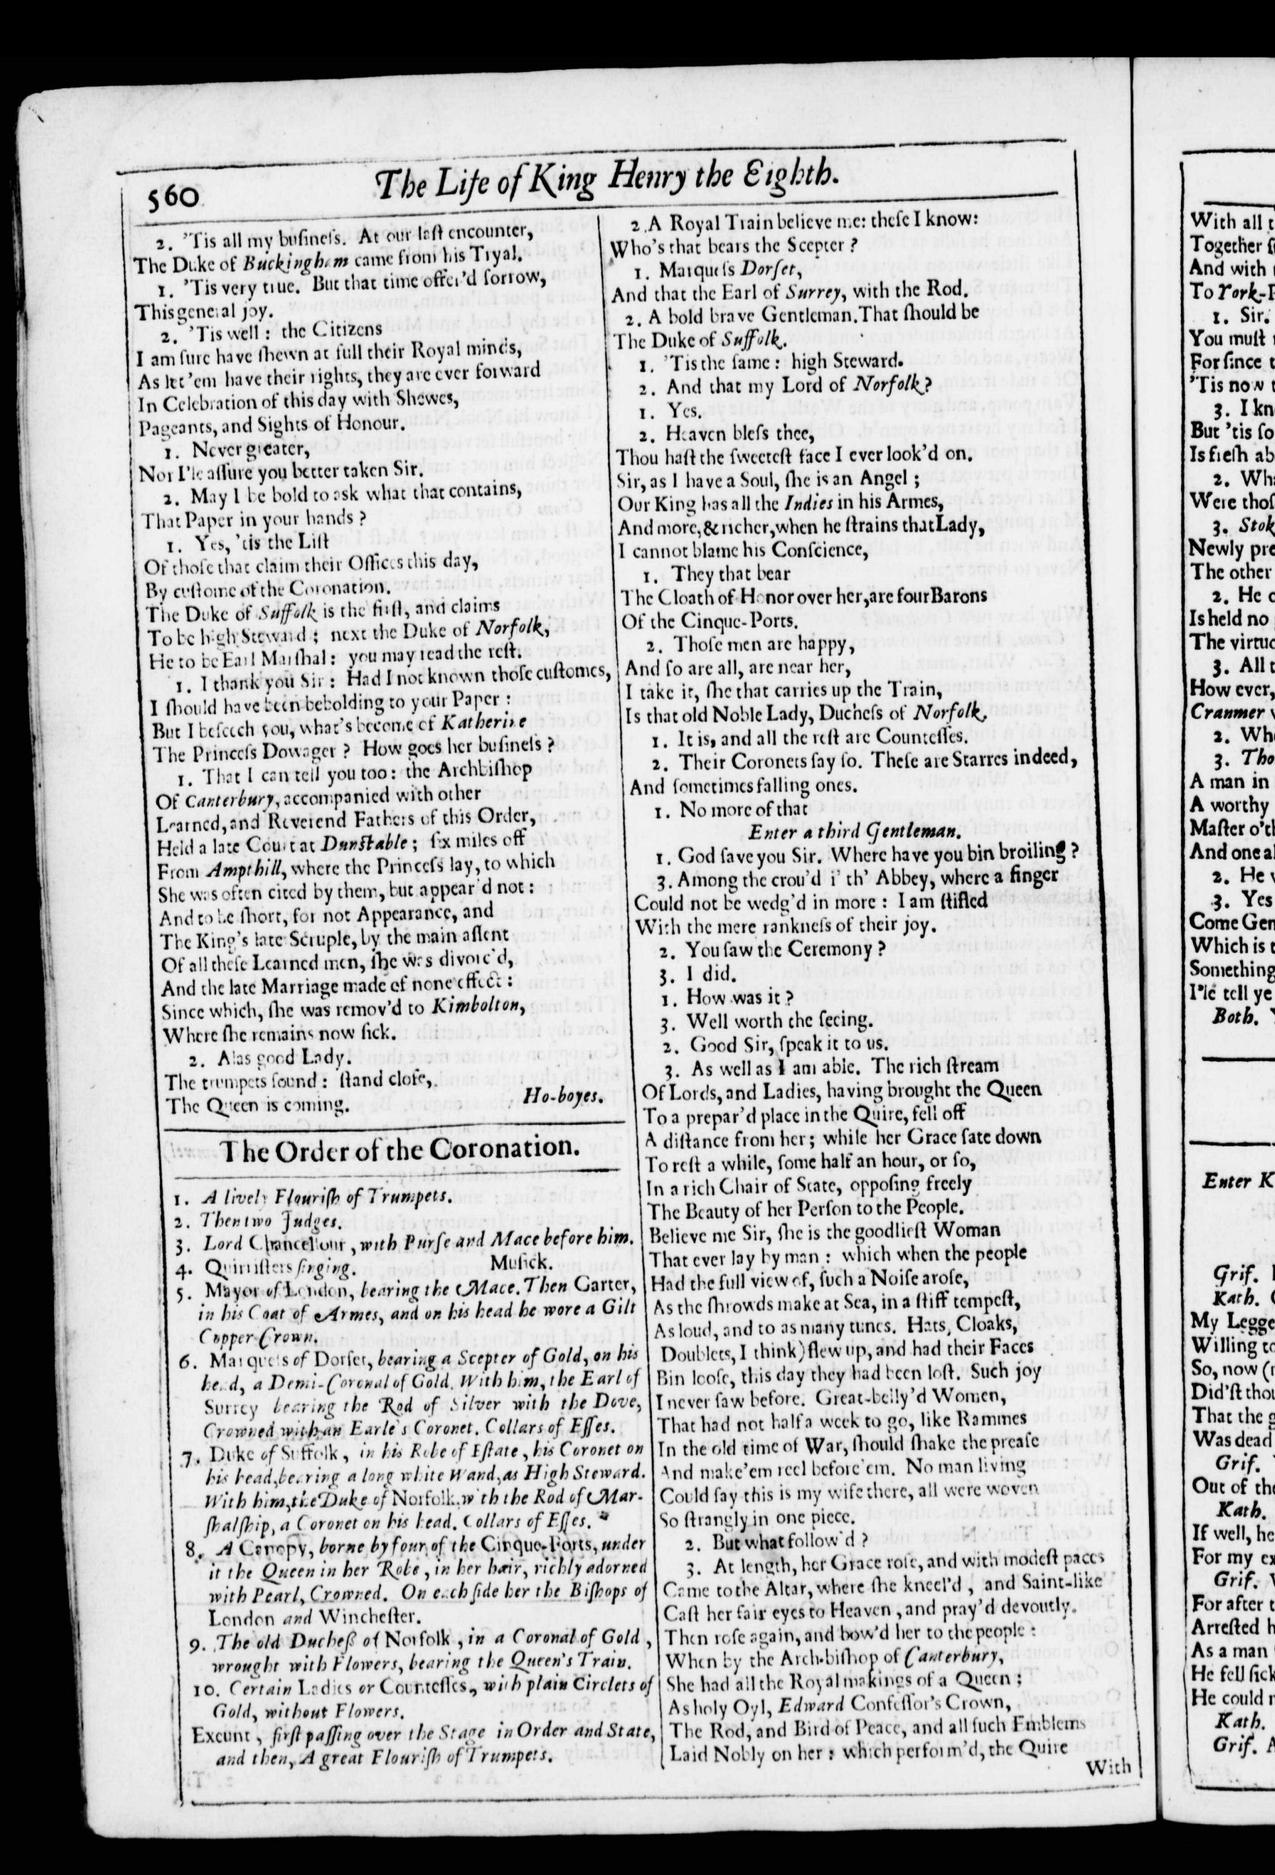 560
The Life of King Henry the Eighth.
2. 'Tis all my buſineſs. At our laſt encounter,
The Duke of Buckingham came from his Tryal.
1. 'Tis very true. But that time offer'd ſorrow,
This general joy.
2. 'Tis well: the Citizens
I am ſure have ſhewn at full their Royal minds,
As let 'em have their rights, they are ever forward
In Celebration of this day with Shewes,
Pageants, and Sights of Honour.
1. Never greater,
Nor I'le aſſure you better taken Sir.
2. May I be bold to ask what that contains,
That Paper in your hands?
1. Yes, 'tis the Liſt
Of thoſe that claim their Offices this day,
By cuſtome of the Coronation.
The Duke of Suffolk is the firſt, and claims
To be high Steward; next the Duke of Norfolk,
He to be Earl Marſhal: you may read the reſt.
1. I thank you Sir: Had I not known thoſe cuſtomes,
I ſhould have been beholding to your Paper:
But I beſeech you, what's become of Katherine
The Princeſs Dowager? How goes her buſineſs?
1. That I can tell you too: the Archbiſhop
Of Canterbury, accompanied with other
Learned, and Reverend Fathers of this Order,
Held a late Court at Dunſtable; ſix miles off
From Ampthill, where the Princeſs lay, to which
She was often cited by them, but appear'd not:
And to be ſhort, for not Appearance, and
The King's late Scruple, by the main aſſent
Of all theſe Learned men, ſhe was divorc'd,
And the late Marriage made of none effect:
Since which, ſhe was remov'd to Kimbolton,
Where ſhe remains now ſick.
2. Alas good Lady.
The trumpets ſound: ſtand cloſe,
The Queen is coming. Ho-boyes.
The Order of the Coronation.
1. A lively Flouriſh of Trumpets.
2. Then two Judges.
3. Lord Chancellour, with Purſe and Mace before him.
4. Quiriſters ſinging. Muſick.
5. Mayor of London, bearing the Mace. Then Garter,
in his Coat of Armes, and on his head he wore a Gilt
Copper Crown.
6. Marqueſs of Dorſet, bearing a Scepter of Gold, on his
head, a Demi-Coronal of Gold. With him, the Earl of
Surrey bearing the Rod of Silver with the Dove,
Crowned with an Earle's Coronet. Collars of Eſſes.
7. Duke of Suffolk, in his Robe of Eſtate, his Coronet on
his head, bearing a long white Wand, as High Steward.
With him, the Duke of Norfolk, with the Rod of Mar-
ſhalſhip, a Coronet on his head. Collars of Eſſes.
8. A Canopy, borne by four of the Cinque-Ports, under
it the Queen in her Robe, in her hair, richly adorned
with Pearl, Crowned. On each ſide her the Biſhops of
London and Wincheſter.
9. The old Ducheſs of Norfolk, in a Coronal of Gold,
wrought with Flowers, bearing the Queen's Train.
10. Certain Ladies or Counteſſes, with plain Circlets of
Gold, without Flowers.
Exeunt, firſt paſſing over the Stage in Order and State,
and then, A great Flouriſh of Trumpets.
2. A Royal Train believe me: theſe I know:
Who's that bears the Scepter?
1. Marqueſs Dorſet,
And that the Earl of Surrey, with the Rod.
2. A bold brave Gentleman. That ſhould be
The Duke of Suffolk.
1. 'Tis the ſame: high Steward.
2. And that my Lord of Norfolk?
1. Yes.
2. Heaven bleſs thee,
Thou haſt the ſweeteſt face I ever look'd on.
Sir, as I have a Soul, ſhe is an Angel;
Our King has all the Indies in his Armes,
And more, & richer, when he ſtrains that Lady,
I cannot blame his Conſcience,
1. They that bear
The Cloath of Honor over her, are four Barons
Of the Cinque-Ports.
2. Thoſe men are happy,
And ſo are all, are near her,
I take it, ſhe that carries up the Train,
Is that old Noble Lady, Ducheſs of Norfolk.
1. It is, and all the reſt are Counteſſes.
2. Their Coronets ſay ſo. Theſe are Starres indeed,
And ſometimes falling ones.
1. No more of that
Enter a third Gentleman.
1. God ſave you Sir. Where have you bin broiling?
3. Among the crou'd i' th' Abbey, where a finger
Could not be wedg'd in more: I am ſtifled
With the mere rankneſs of their joy.
2. You ſaw the Ceremony?
3. I did.
1. How was it?
3. Well worth the ſeeing.
2. Good Sir, ſpeak it to us.
3. As well as I am able. The rich ſtream
Of Lords, and Ladies, having brought the Queen
To a prepar'd place in the Quire, fell off
A diſtance from her; while her Grace ſate down
To reſt a while, ſome half an hour, or ſo,
In a rich Chair of State, oppoſing freely
The Beauty of her Perſon to the People.
Believe me Sir, ſhe is the goodlieſt Woman
That ever lay by man: which when the people
Had the full view of, ſuch a Noiſe aroſe,
As the ſhrowds make at Sea, in a ſtiff tempeſt,
As loud, and to as many tunes. Hats, Cloaks,
Doublets, I think) flew up, and had their Faces
Bin looſe, this day they had been loſt. Such joy
I never ſaw before. Great-belly'd Women,
That had not half a week to go, like Rammes
In the old time of War, ſhould ſhake the preaſe
And make 'em reel before 'em. No man living
Could ſay this is my wife there, all were woven
So ſtrangly in one piece.
2. But what follow'd?
3. At length, her Grace roſe, and with modeſt paces
Came to the Altar, where ſhe kneel'd, and Saint-like
Caſt her fair eyes to Heaven, and pray'd devoutly.
Then roſe again, and bow'd her to the people:
When by the Arch-biſhop of Canterbury,
She had all the Royal makings of a Queen;
As holy Oyl, Edward Confeſſor's Crown,
The Rod, and Bird of Peace, and all ſuch Emblems
Laid Nobly on her: which perform'd, the Quire
With
With all
Together
And with
To York-
1. Sir.
You muſt
For ſince
'Tis now
3. I
But 'tis ſo
Is freſh
2.
Were
3.
Newly
The other
2. He
Is held no
The
3. All
How ever,
Cranmer
2.
3.
A man in
A worthy
Maſter
And one
2. He
3. Yes
Come
Which is
Something
I'le tell ye
Both.
Enter
Grif.
Kath.
My
Willing
So, now
Did'ſt
That the
Was dead
Grif.
Out of
Kath.
If well,
For my
Grif.
For after
Arreſted
As a man
He fell
He could
Kath.
Grif.